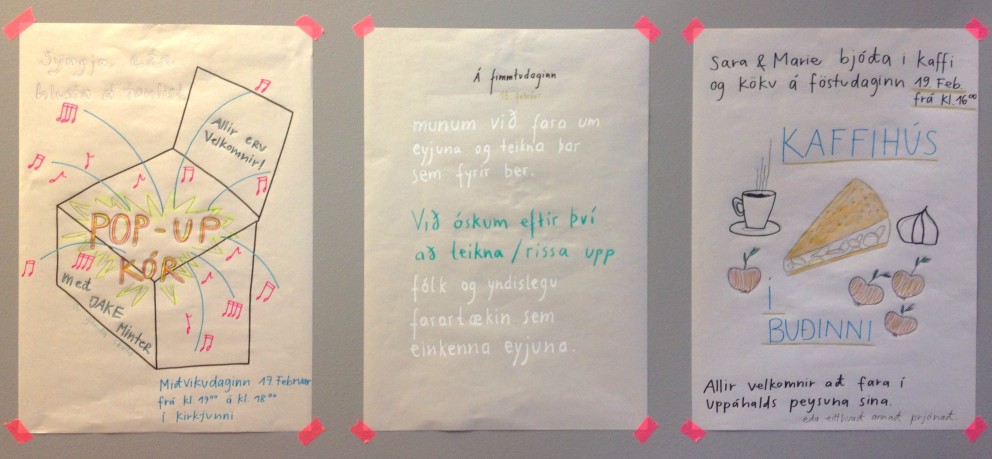 Syngja
Allir eru
Velkomnir!
POP-UP
KÓR
með
JAKE
Minter
Miðvikudaginn 17 Februar
frá kl. 19⁰⁰ á kl 18⁰⁰
í kirkjunni
Á fimmtudaginn
munum við fara um
eyjuna og teikna þar
sem fyrir ber.
Við óskum eftir því
að teikna / rissa upp
fólk og yndislegu
farartækin sem
einkenna eyjuna.
Sara & Marie bjóða i kaffi
og köku á föstudaginn 19 Feb.
frá kl. 16⁰⁰
KAFFIHÚS
í
BUÐINNI
Allir velkomnir að fara í
uppáhalds peysuna sína.
eða eitthvað annað prjónað.